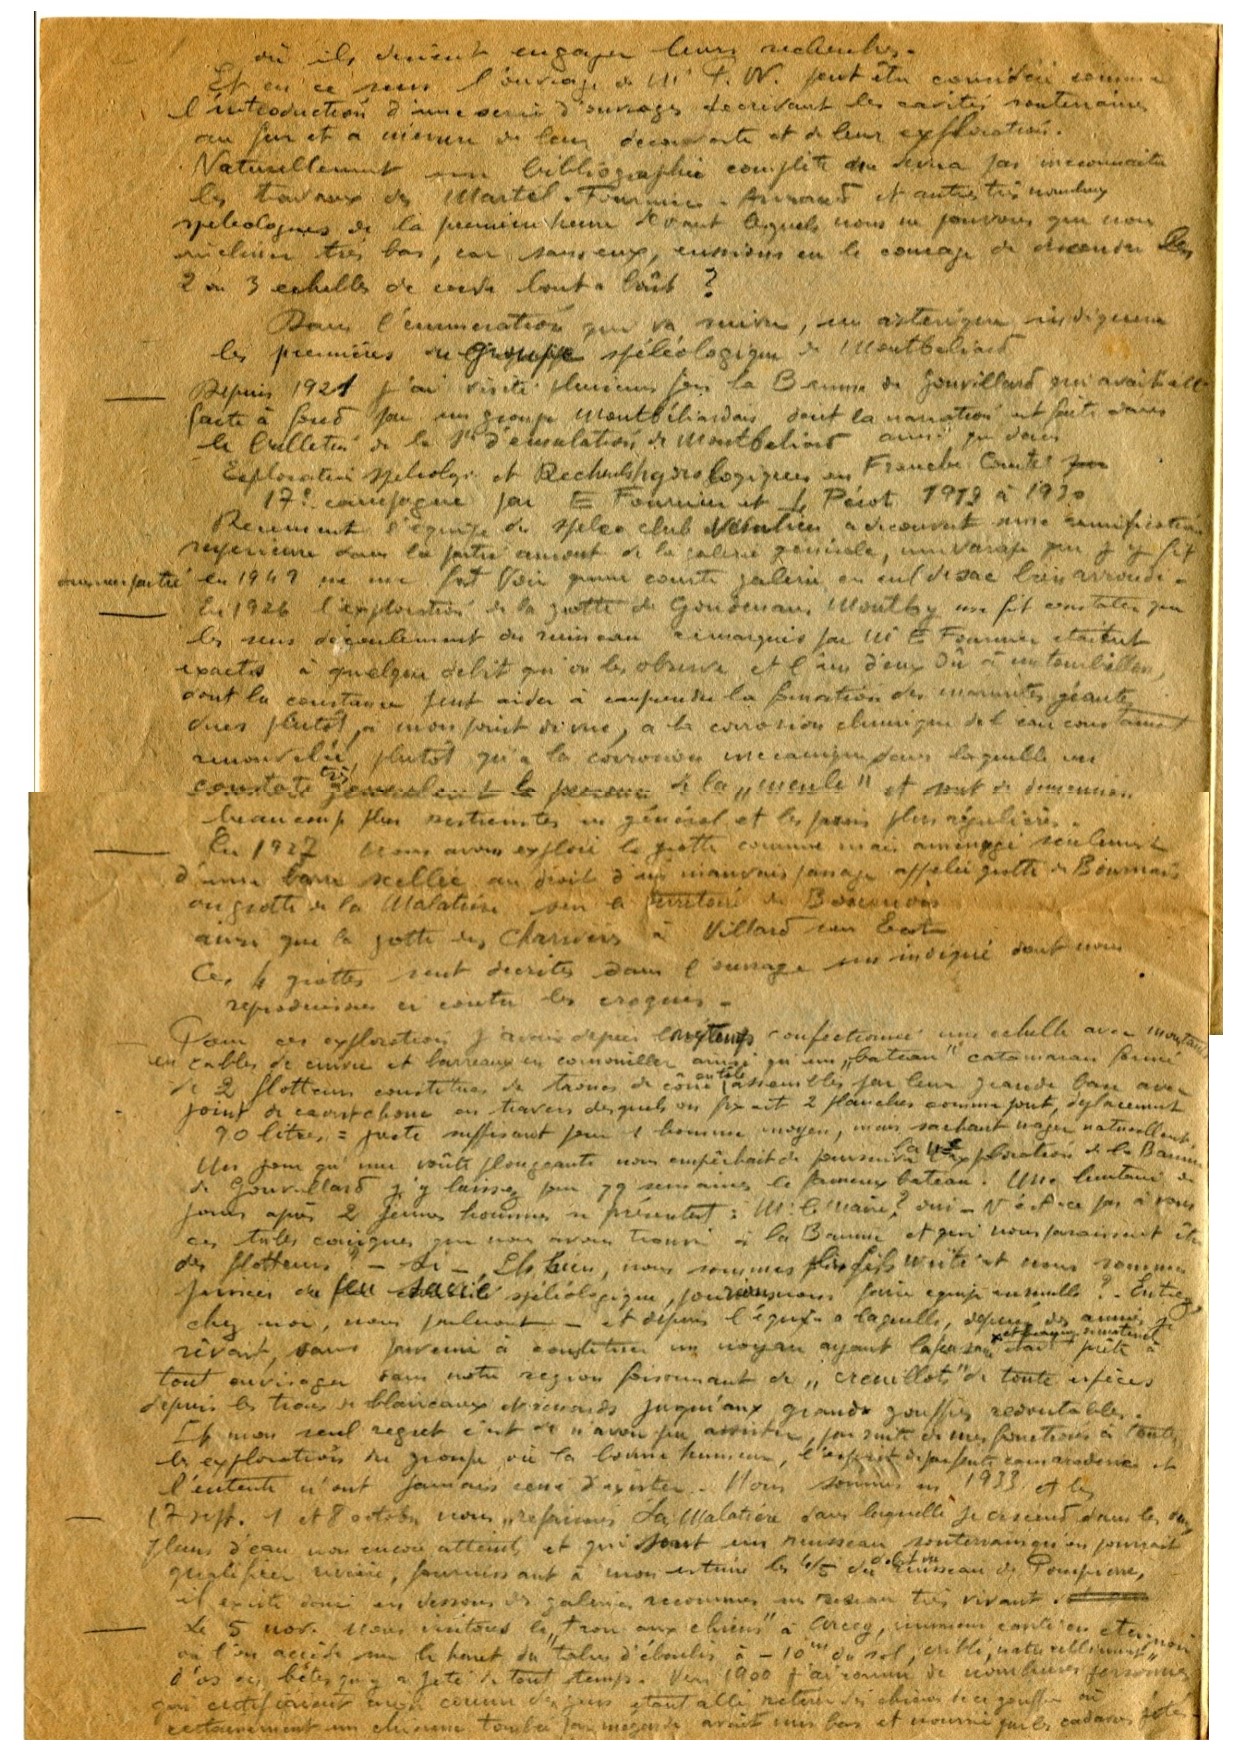 où ils doivent engager leurs recherches.
Et en ce sens l'ouvrage de Mr P. W. peut être considéré comme
l'introduction d'une serie d'ouvrages decrivant les cavités souterraines
au fur et a mesure de leur decouverte et de leur exploration.
Naturellement une bibliographie complète ne devra pas meconnaitre
les travaux des Martel. Fournier. et autres très nombreux
speleologues de la premiere heure devant lesquels nous ne pouvons que nous
incliner très bas, car sans eux, eussions eu le courage de descendre les
2 ou 3 echelles de corde bout a bout ?
Dans l'enumeration qui va suivre, un asterisque indiquera
les premières du Groupe spéléologique de Montbeliard
Depuis 1921 j'ai visité plusieurs fois la Baume de Gonvillard qui avait été
faite à fond par un groupe Montbéliardais dont la narration est faite dans
le bulletin de la Sté d'émulation de Montbeliard ainsi que dans
Exploration speleolog. et Recherches hydrologiques en Franche Comté
17e campagne par E Fournier et Pérot 1919 à 1920
Recemment l'équipe du speleo club a decouvert une ramification
superieure dans la partie amont de la galerie generale, que j'y fis
en 1949 ne me fit voir qu'une courte galerie en cul de sac bien arrondi -
En 1926 l'exploration de la grotte de Gondenans Montby me fit constater que
les sens d'écoulement du ruisseau remarqués par Mr E Fournier etaient
exacts à quelque debit qu'on les observe et l'un d'eux dû à un tourbillon,
dont la constance peut aider à comprendre la formation des marmites géantes
dues plutôt, à mon point de vue, a la corrosion chimique de l'eau constamment
renouvelée, plutôt qu'a la corrosion mecanique dans laquelle on
constate très de la "meule" et sont de dimensions
beaucoup plus restreintes en général et les parois plus régulières.
En 1927 nous avons exploré la grotte connue mais aménagée seulement
d'une barre scellée au droit d'un mauvais passage appelée grotte de Bournois
ou grotte de la Malatière sur le territoire de Bournois
ainsi que la grotte des Charniers à Villard sous Ecot
Ces 4 grottes sont decrites dans l'ouvrage sus indiqué dont nous
reproduisons ci contre les croquis -
Pour ces explorations j'avais depuis longtemps confectionné une echelle avec montants
en cables de cuivre et barreaux en cornouiller ainsi qu'un "bateau" catamaran formé
de 2 flotteurs constitués de troncs de cône en tôle assemblés par leur grande base avec
joint de caoutchouc en travers desquels on fixait 2 planches comme pont, deplacement
90 litres = juste suffisant pour 1 homme moyen, mais sachant nager naturellement.
Un jour qu'une voûte plongeante nous empêchait de poursuivre l'exploration de la Baume
de Gonvillard j'y laissez par semaines le fameux bateau. Une huitaine de
jours après 2 jeunes hommes se présentent : Mr le Maire ? oui - N'est-ce pas à vous
ces tubes coniques que nous avons trouvé à la Baume et qui nous paraissent être
des flotteurs ? - Si - Eh bien, nous sommes et nous sommes
du feu sacré spéléologique, pourrions nous faire equipe ensemble ? - Entrez
chez moi, nous parlerons - et depuis l'équipe a laquelle, depuis des années je
rêvais, sans parvenir à constituer un noyau ayant prête à
tout envisager dans notre region foisonnant de "creuillots" de toute espèces
depuis les trous de blaireaux et renards jusqu'aux grands gouffres redoutables.
Et mon seul regret c'est de n'avoir pu assister, par suite de mes fonctions à toutes
les explorations du groupe où la bonne humeur, l'esprit de parfaite camaraderie et
l'entente n'ont jamais cessé d'exister. Nous sommes en 1933 et les
17 sept. 1 et 8 octobre nous "refaisons" La Malatière dans laquelle je descend dans les
plans d'eau non encore atteints et qui sont un ruisseau souterrain qu'on pourrait
qualifier rivière, fournissant à mon estime les 4/5 du ruisseau de Pompierre,
il existe donc en dessous des galeries reconnues un reseau très vivant.
Le 5 nov. nous visitons le "trou aux chiens" à Arcey, immense cavité en eteignoir
où l'on accède sur le haut du talus d'éboulis à - 10m du sol, criblé, naturellement
d'os des bêtes qu'on y a jeté de tout temps. Vers 1900 j'ai connu de nombreuses personnes
qui certifiaient avoir connu des gens etant allé retirer des chiens de ce gouffre où
certainement une chienne tombée par megarde avait mis bas et nourrie par les cadavres jetés -